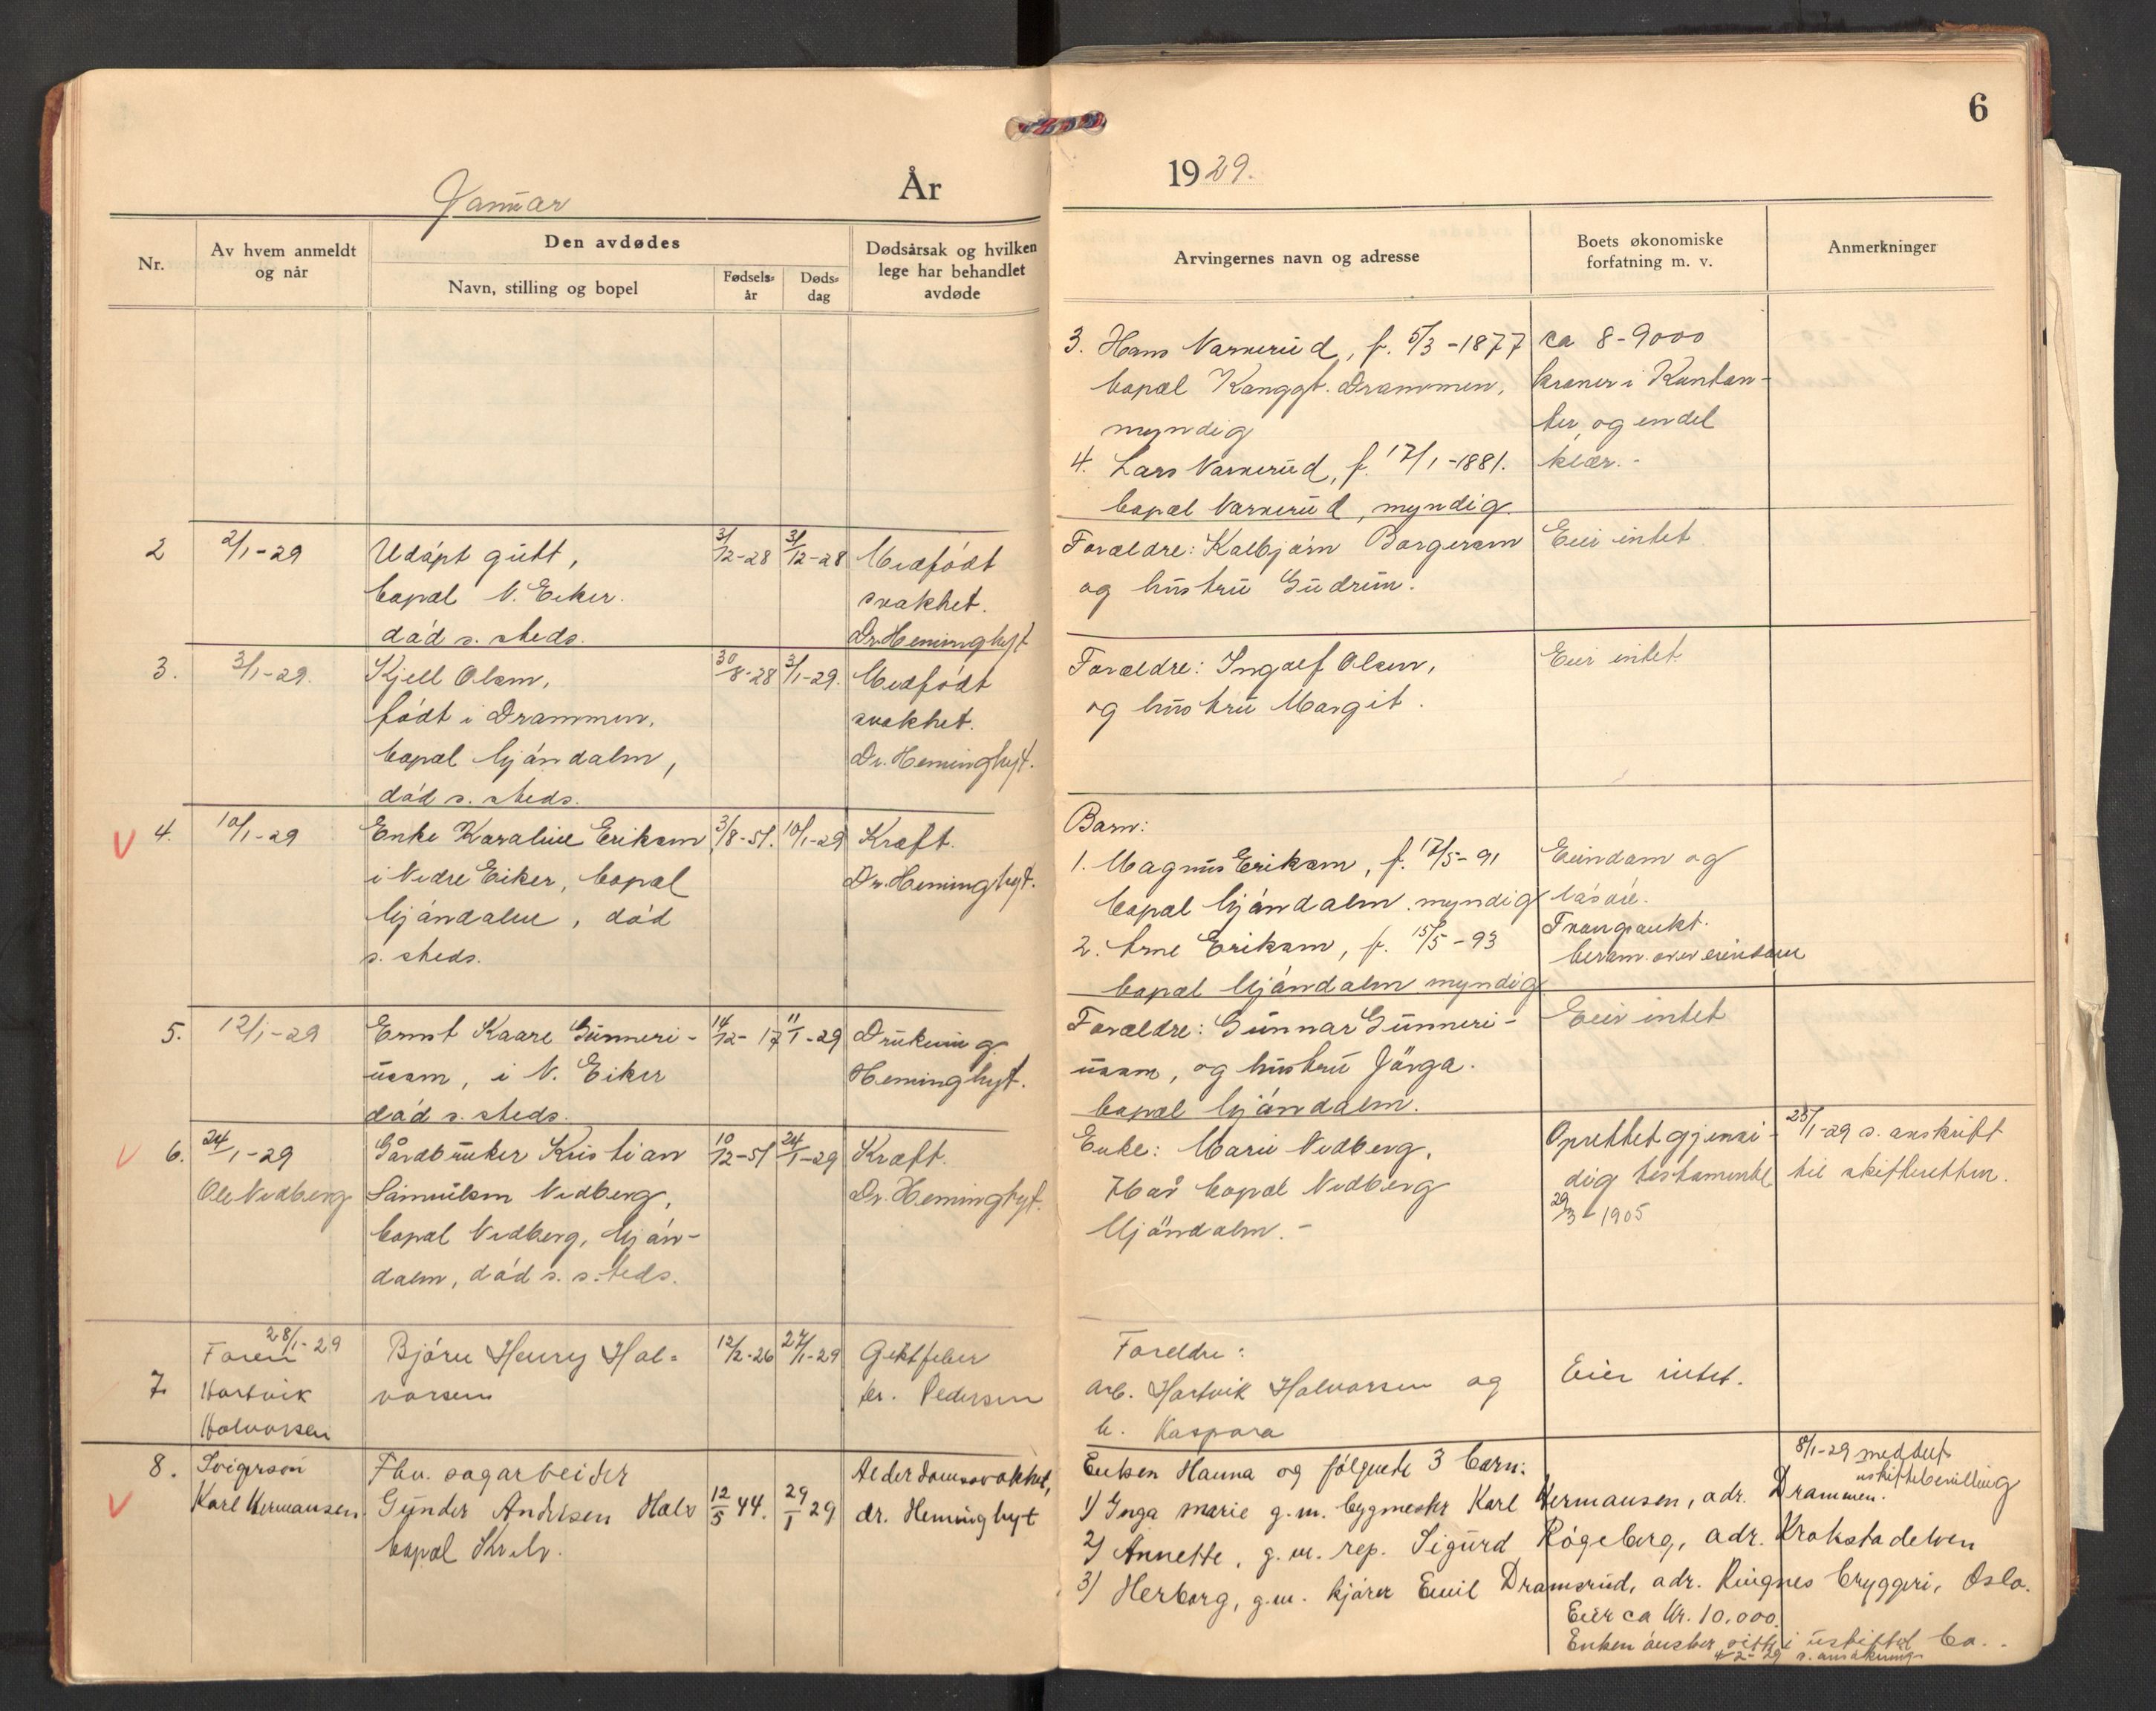 6
Januar
År
1929.
Nr.
Av hvem anmeldt
og når
Den avdødes
Navn, stilling og bopel
Fødsels-
år
Døds-
dag
Dødsårsak og hvilken
lege har behandlet
avdøde
Arvingernes navn og adresse
Boets økonomiske
forfatning m. v.
Anmerkninger
3. Hans Varnerud, f. 5/3-1877
bopæl Konggt. Drammen,
myndig
4. Lars Varnerud, f. 17/1-1881.
bopæl Varnerud, myndig.
ca 8-9000
kroner i Kontan-
ter og endel
klær.-
2
2/1-29
Udøpt gutt,
bopæl N. Eiker.
død s. steds.
31/12-28
31/12-28
Medfødt
svakhet.
Dr. Heminghyt
Forældre: Kolbjørn Borgersen
og hustru Gudrun.
Eier intet
3.
3/1-29.
Kjell Olsen,
født i Drammen,
bopæl Mjøndalen,
død s. steds.
30/8-28
3/1-29.
Medfødt
svakhet.
Dr. Heminghyt.
Forældre: Ingolf Olsen,
og hustru Margit.
Eier intet
V 4.
10/1-29
Enke Karoline Eriksen
i Nedre Eiker, bopæl
Mjøndalen, død
s. steds.
3/8-51.
10/1-29
Kræft.
Dr. Heminghyt.
Barn:
1. Magnus Eriksen, f. 17/5-91
bopæl Mjøndalen. myndig
2. Arne Eriksen, f. 15/5-93
bopæl Mjøndalen myndig
Eiendom og
løsøre.
Tvangsaukt.
beram. over eiendom
5.
12/1-29
Ernst Kaare Gunneri-
ussen, i N. Eiker
død s. steds.
14/12-17
11/1-29
Drukning
Heminghyt.
Forældre: Gunnar Gunneri-
ussen, og hustru Jørga.
bopæl Mjøndalen.
Eier intet
V 6.
24/1-29
Ole Nedberg
Gårdbruker Kristian
Samuelsen Nedberg,
bopæl Nedberg, Mjøn-
dalen, død s. steds.
10/12-51
24/1-29
Kræft.
Dr. Heminghyt.
Enke: Marie Nedberg,
76 år bopæl Nedberg
Mjøndalen.-
Oprettet gjensi-
dig testamente
29/3-1905
25/1-29 s. anskrift
til skifteretten.
7.
28/1-29
Faren
Hartvik
Halvorsen
Bjørn Henry Hal-
vorsen
12/2-26
27/1-29
Giktfeber
dr. Pedersen
Foreldre:
arb. Hartvik Halvorsen og
h. Kaspara
Eier intet.
V 8.
Svigersøn
Karl Hermansen.
Fhv. sagarbeider
Gunder Andersen Hals
bopæl Kr.elv.
12/5 44.
29/1 29
Alderdomssvakhet,
dr. Heminghyt
Enken Hanna og følgende 3 barn:
1) Inga Marie g.m. bygmester Karl Hermansen, adr. Drammen.
2) Annette, g.m. rep. Sigurd Røgeberg, adr. Krokstadelven
3) Herborg, g.m. kjører Emil Dramsrud, adr. Ringnes bryggeri, Oslo.
8/1-29 meddelt
uskiftebevilling
Eier ca Kr. 10.000
Enken ønsker sitte i uskiftet bo.-
4/2-29 s. ansøkning